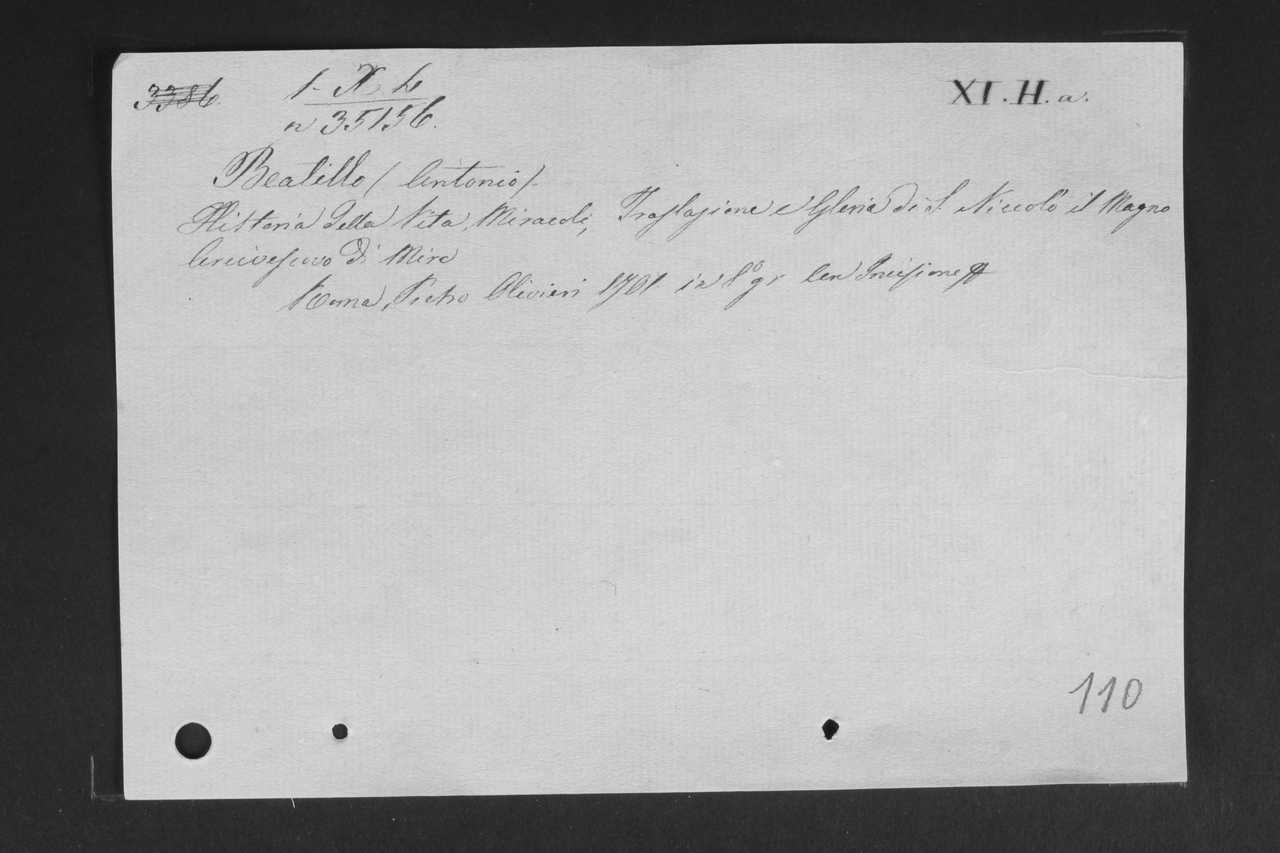 3386 1- X L XI. H. a.
n 35156.
Beatillo (Antonio).
Histtoria della Vita, Miracoli, Traslazione e Gloria di S Niccolò il Magno
Arcivescovo di Mira
Roma, Pietro Olivieri 1701 in 8º gr Con Incisione
110